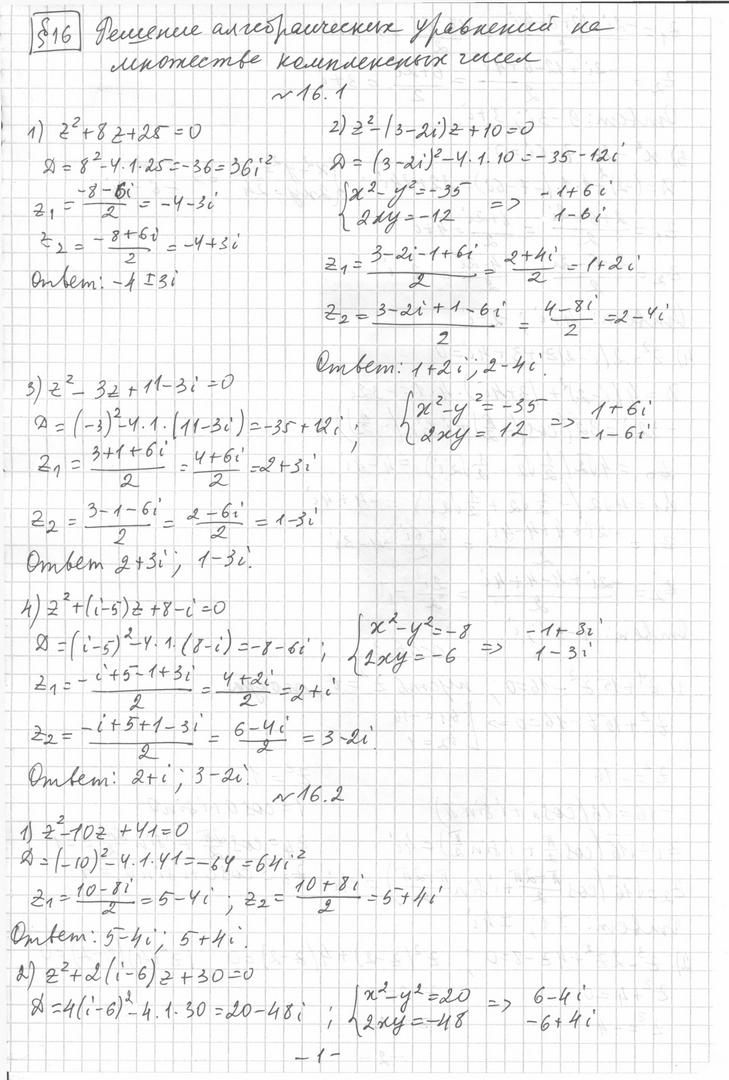 §16 Решение алгебраических уравнений на
множестве комплексных чисел
~16.1
1) z²+8z+25=0
D=8²-4·1·25=-36=36i²
z₁=(-8-6i)/2=-4-3i
z₂=(-8+6i)/2=-4+3i
Ответ: -4±3i
2) z²-(3-2i)z+10=0
D=(3-2i)²-4·1·10=-35-12i
{x²-y²=-35
2xy=-12 => -1+6i
1-6i
z₁=(3-2i-1+6i)/2=(2+4i)/2=1+2i
z₂=(3-2i+1-6i)/2=(4-8i)/2=2-4i
Ответ: 1+2i; 2-4i.
3) z²-3z+11-3i=0
D=(-3)²-4·1·(11-3i)=-35+12i; {x²-y²=-35
2xy=12 => 1+6i
-1-6i
z₁=(3+1+6i)/2=(4+6i)/2=2+3i
z₂=(3-1-6i)/2=(2-6i)/2=1-3i
Ответ 2+3i; 1-3i.
4) z²+(i-5)z+8-i=0
D=(i-5)²-4·1·(8-i)=-8-6i; {x²-y²=-8
2xy=-6 => -1+3i
1-3i
z₁=(-i+5-1+3i)/2=(4+2i)/2=2+i
z₂=(-i+5+1-3i)/2=(6-4i)/2=3-2i.
Ответ: 2+i; 3-2i.
~16.2
1) z²-10z+41=0
D=(-10)²-4·1·41=-64=64i²
z₁=(10-8i)/2=5-4i; z₂=(10+8i)/2=5+4i
Ответ: 5-4i; 5+4i.
2) z²+2(i-6)z+30=0
D=4(i-6)²-4·1·30=20-48i; {x²-y²=20
2xy=-48 => 6-4i
-6+4i
-1-